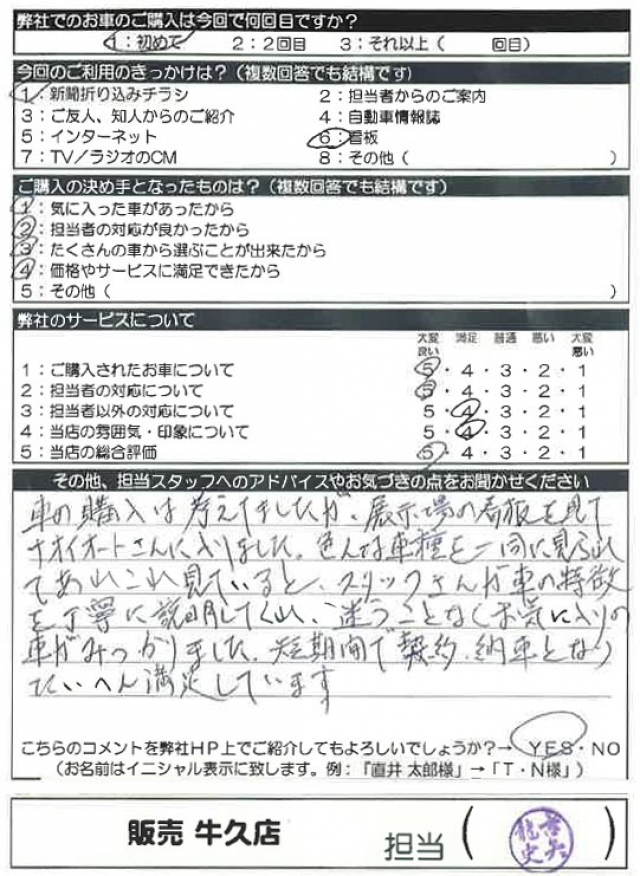 弊社でのお車のご購入は今回で何回目ですか？
1：初めて 2：2回目 3：それ以上（ 回目）
今回のご利用のきっかけは？（複数回答でも結構です）
1：新聞折り込みチラシ 2：担当者からのご案内
3：ご友人、知人からのご紹介 4：自動車情報誌
5：インターネット 6：看板
7：TV／ラジオのCM 8：その他（ ）
ご購入の決め手となったものは？（複数回答でも結構です）
1：気に入った車があったから
2：担当者の対応が良かったから
3：たくさんの車から選ぶことが出来たから
4：価格やサービスに満足できたから
5：その他（ ）
弊社のサービスについて
大変良い 満足 普通 悪い 大変悪い
1：ご購入されたお車について 5・4・3・2・1
2：担当者の対応について 5・4・3・2・1
3：担当者以外の対応について 5・4・3・2・1
4：当店の雰囲気・印象について 5・4・3・2・1
5：当店の総合評価 5・4・3・2・1
その他、担当スタッフへのアドバイスやお気づきの点をお聞かせください
車の購入は考えてましたが、展示場の看板を見て
ナオイオートさんに入りました。色んな車種を一同に見られ
てあれこれ見ていると、スタッフさんが車の特徴
を丁寧に説明してくれ、迷うことなくお気に入りの
車がみつかりました。短期間で契約、納車となり
たいへん満足しています
こちらのコメントを弊社HP上でご紹介してもよろしいでしょうか？→ YES・NO
（お名前はイニシャル表示に致します。例：「直井 太郎様」→「T・N様」）
販売 牛久店 担当（ ）